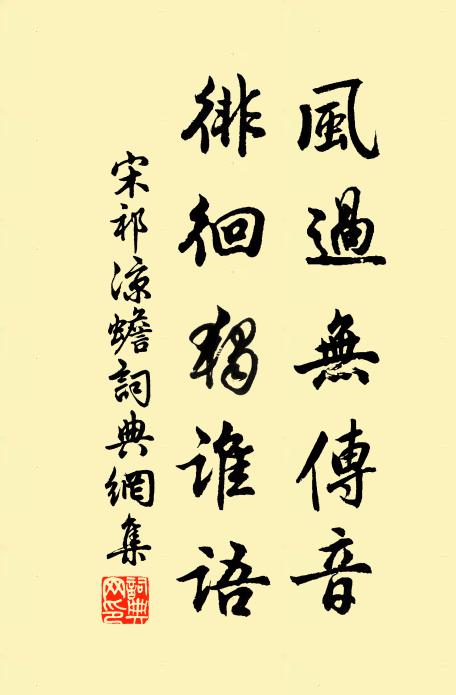 風過無傳音
徘徊獨誰語
宋祁涼蟾詞典網集
詞典網印